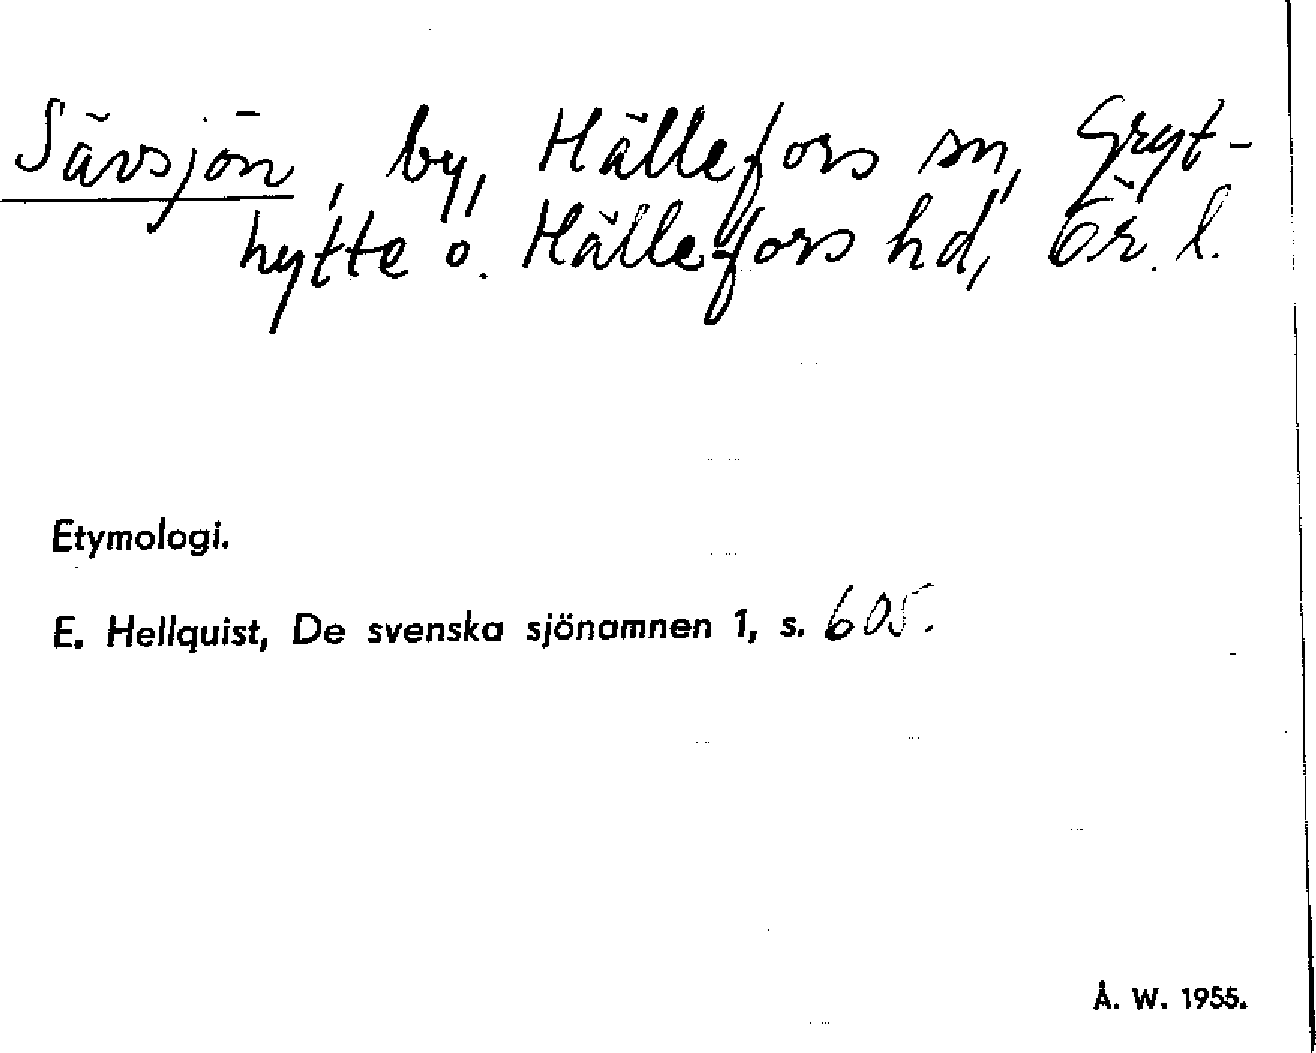 Sävsjön, by, Hällefors sn, Gryt-
hytte o. Hällefors hd, Ör. l.
Etymologi.
E. Hellquist, De svenska sjönamnen 1, s. 605.
Å. W. 1955.